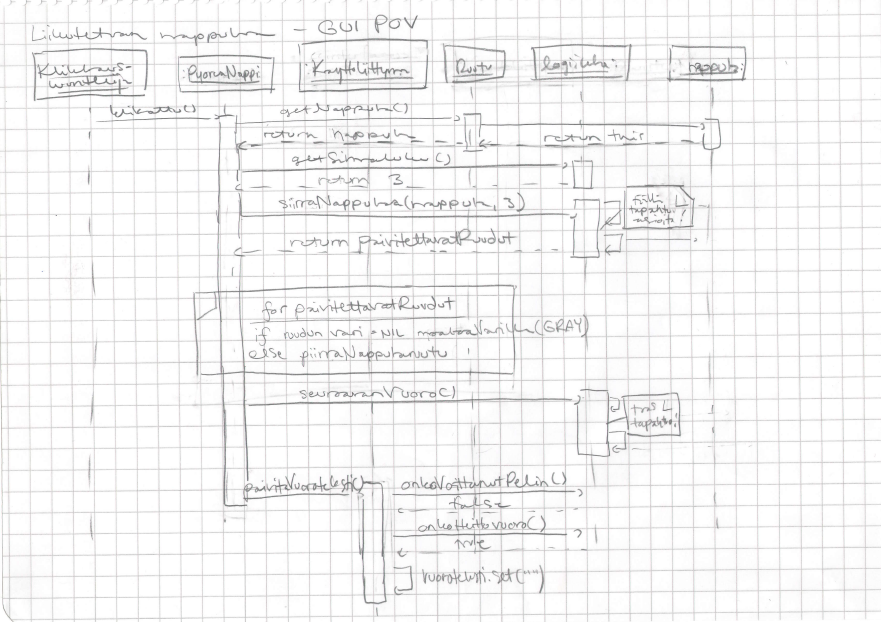 Liikutetaan nappula – GUI POV
:PyoreaNappi
:Kayttoliittyma
:Ruutu
:logiikka:
klikattu()
getNappula()
return nappula
return this
getSilmaluku()
return 3
siirraNappulaa(nappula, 3)
return paivitettavatRuudut
for paivitettavatRuudut
if ruudun vari = NIL
(GRAY)
else piirraNappulanruutu
seuraavanVuoro()
paivitaVuoroteksti()
onkoVoittanutPelin()
false
onkoHeittovuoro()
true
vuoroteksti.set("")